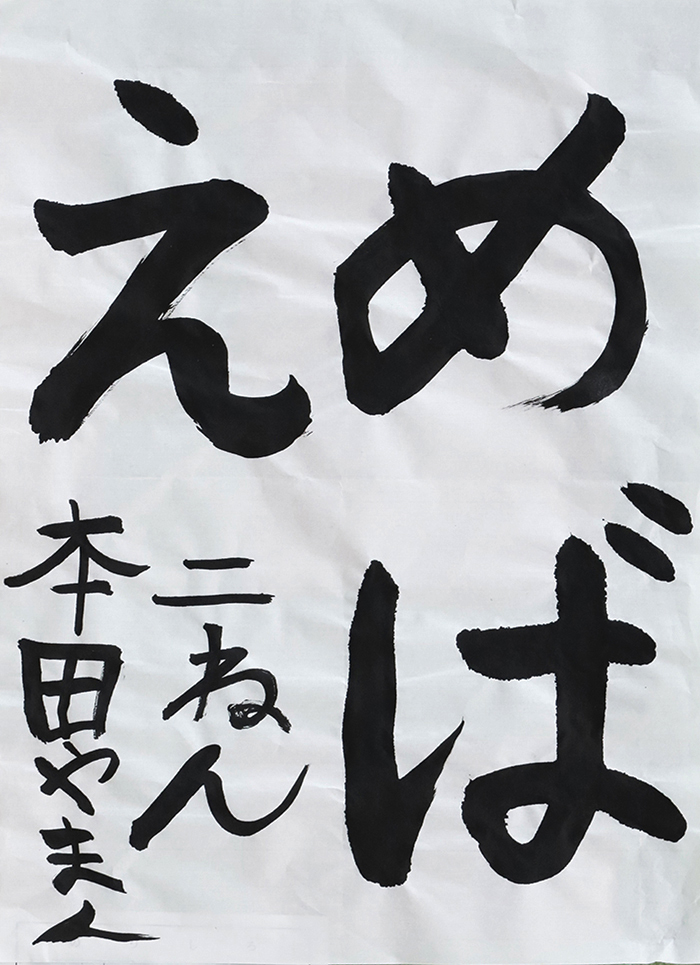 めば
え
二ねん
本田やま人